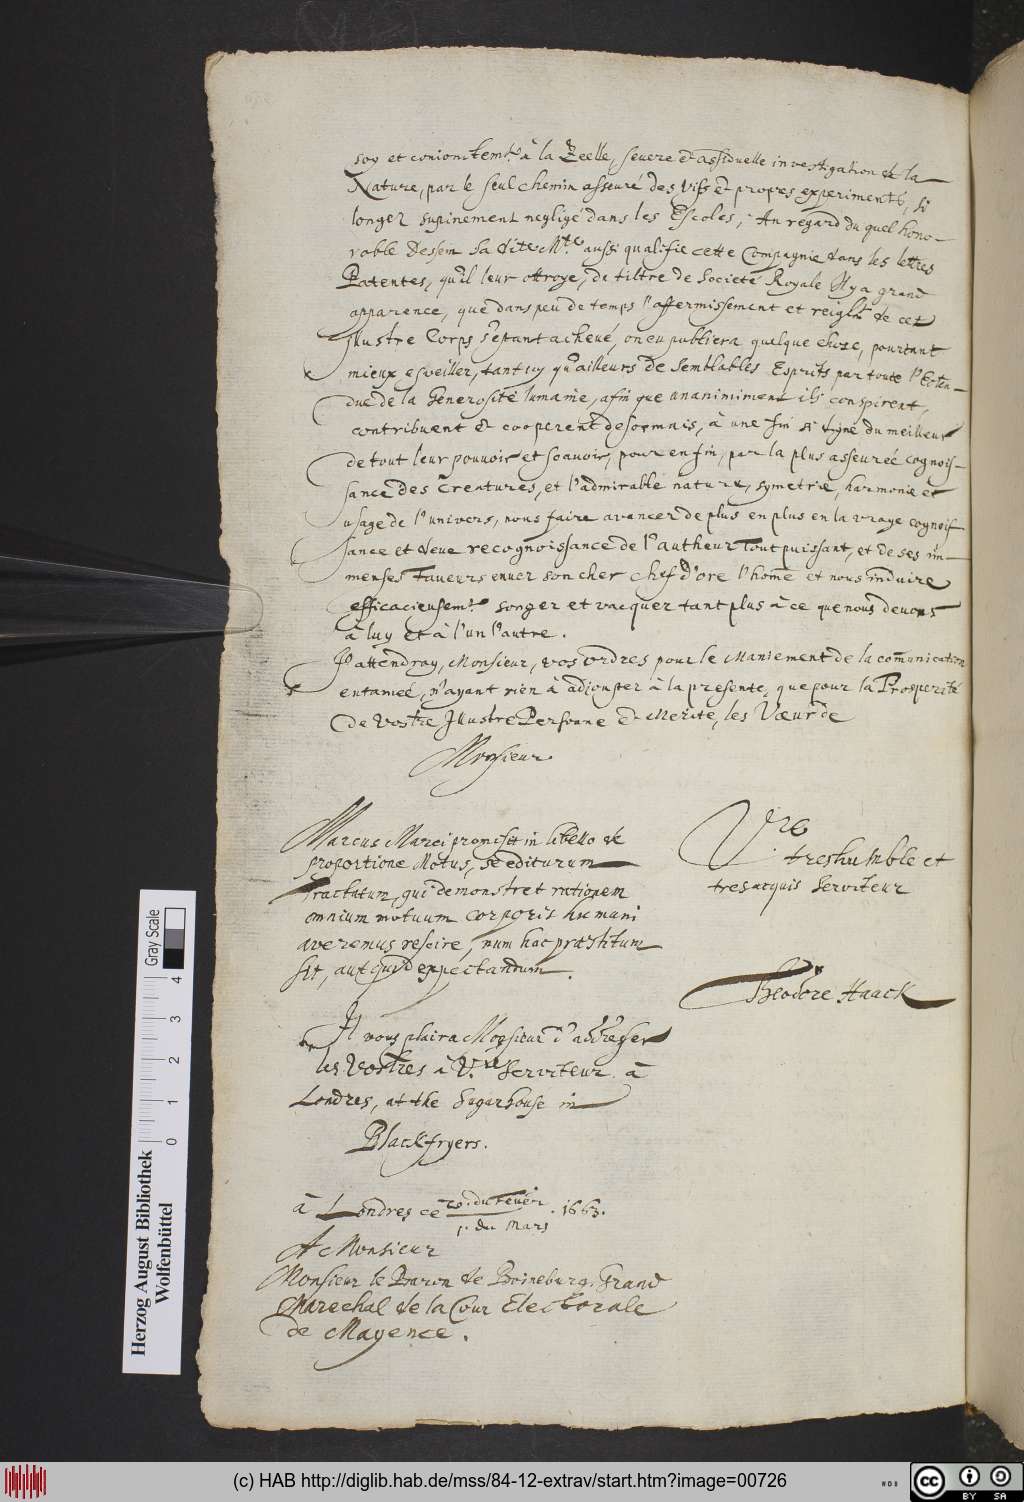 soy et conionctemt. à la Zeelle, severe & assiduelle investigation de la
Nature, par le seul chemin asseuré des vifs & propres experiments, si
longer supinement negligé dans les Escoles, Au regard du quel hono-
rable Dessein sa dite Mte. aussi qualifie cette Compagnie dans les lettres
Patentes, qu'il leur ottroye, du tiltre de Societé Royale Il y a grand
apparence, que dans peu de temps l'affermissement et reiglt. de cet
Illustre Corps s'estant achevé, on en publiera quelque chose, pourtant
mieux esveiller, tant icy qu'ailleurs de semblables Esprits par toute l'Esten-
due de la Generosité humaine, afin que ananimiment ils conspirent,
contribuent & cooperent desormais, à une fin si digne du meilleur
de tout leur pouvoir et scavoir, pour en fin, par la plus asseureé cognois-
sance des Creatures, et l'admirable nature, symetrie, harmonie et
usage de l'univers, nous faire avancer de plus en plus en la vraye cognois-
sance et deue recognoissance de l'autheur Tout puissant, et de ses im-
menses Faveurs enver son cher chef d'ore l'home et nous induire
efficacieusemt. songer et vacquer tant plus à ce que nous devons
à luy et à l'un l'autre.
J'attendray, Monsieur, vos ordres pour le Maniement de la comunication
entameé, n'ayant rien à adiouster à la presente, que pour la Prosperité
de Vostre Illustre Persone & Merite, les Vœux de
Monsieur
Vre
treshumble et
tres acquis Serviteur
Theodore Haack
Marcus Marci promisit in libello de
proportione Motus, se editurum
Tractatum, qui demonstret rationem
omnium motuum corporis humani
averemus rescire, num hoc præstitum
sit, aut quid expectandum.
Il vous plaira Monsieur d'addresser
les Vostres à V.re Serviteur à
Londres, at the Sugarhouse in
Blackfryers.
à Londres ce 20. du Fevér. 1663.
1. du Mars
A Monsieur
Monsieur le Baron de Boineburg, Grand
Marechal de la Cour Electorale
de Mayence.
Herzog August Bibliothek
Wolfenbüttel
0 1 2 3 4
Gray Scale
(c) HAB http://diglib.hab.de/mss/84-12-extrav/start.htm?image=00726
cc BY SA